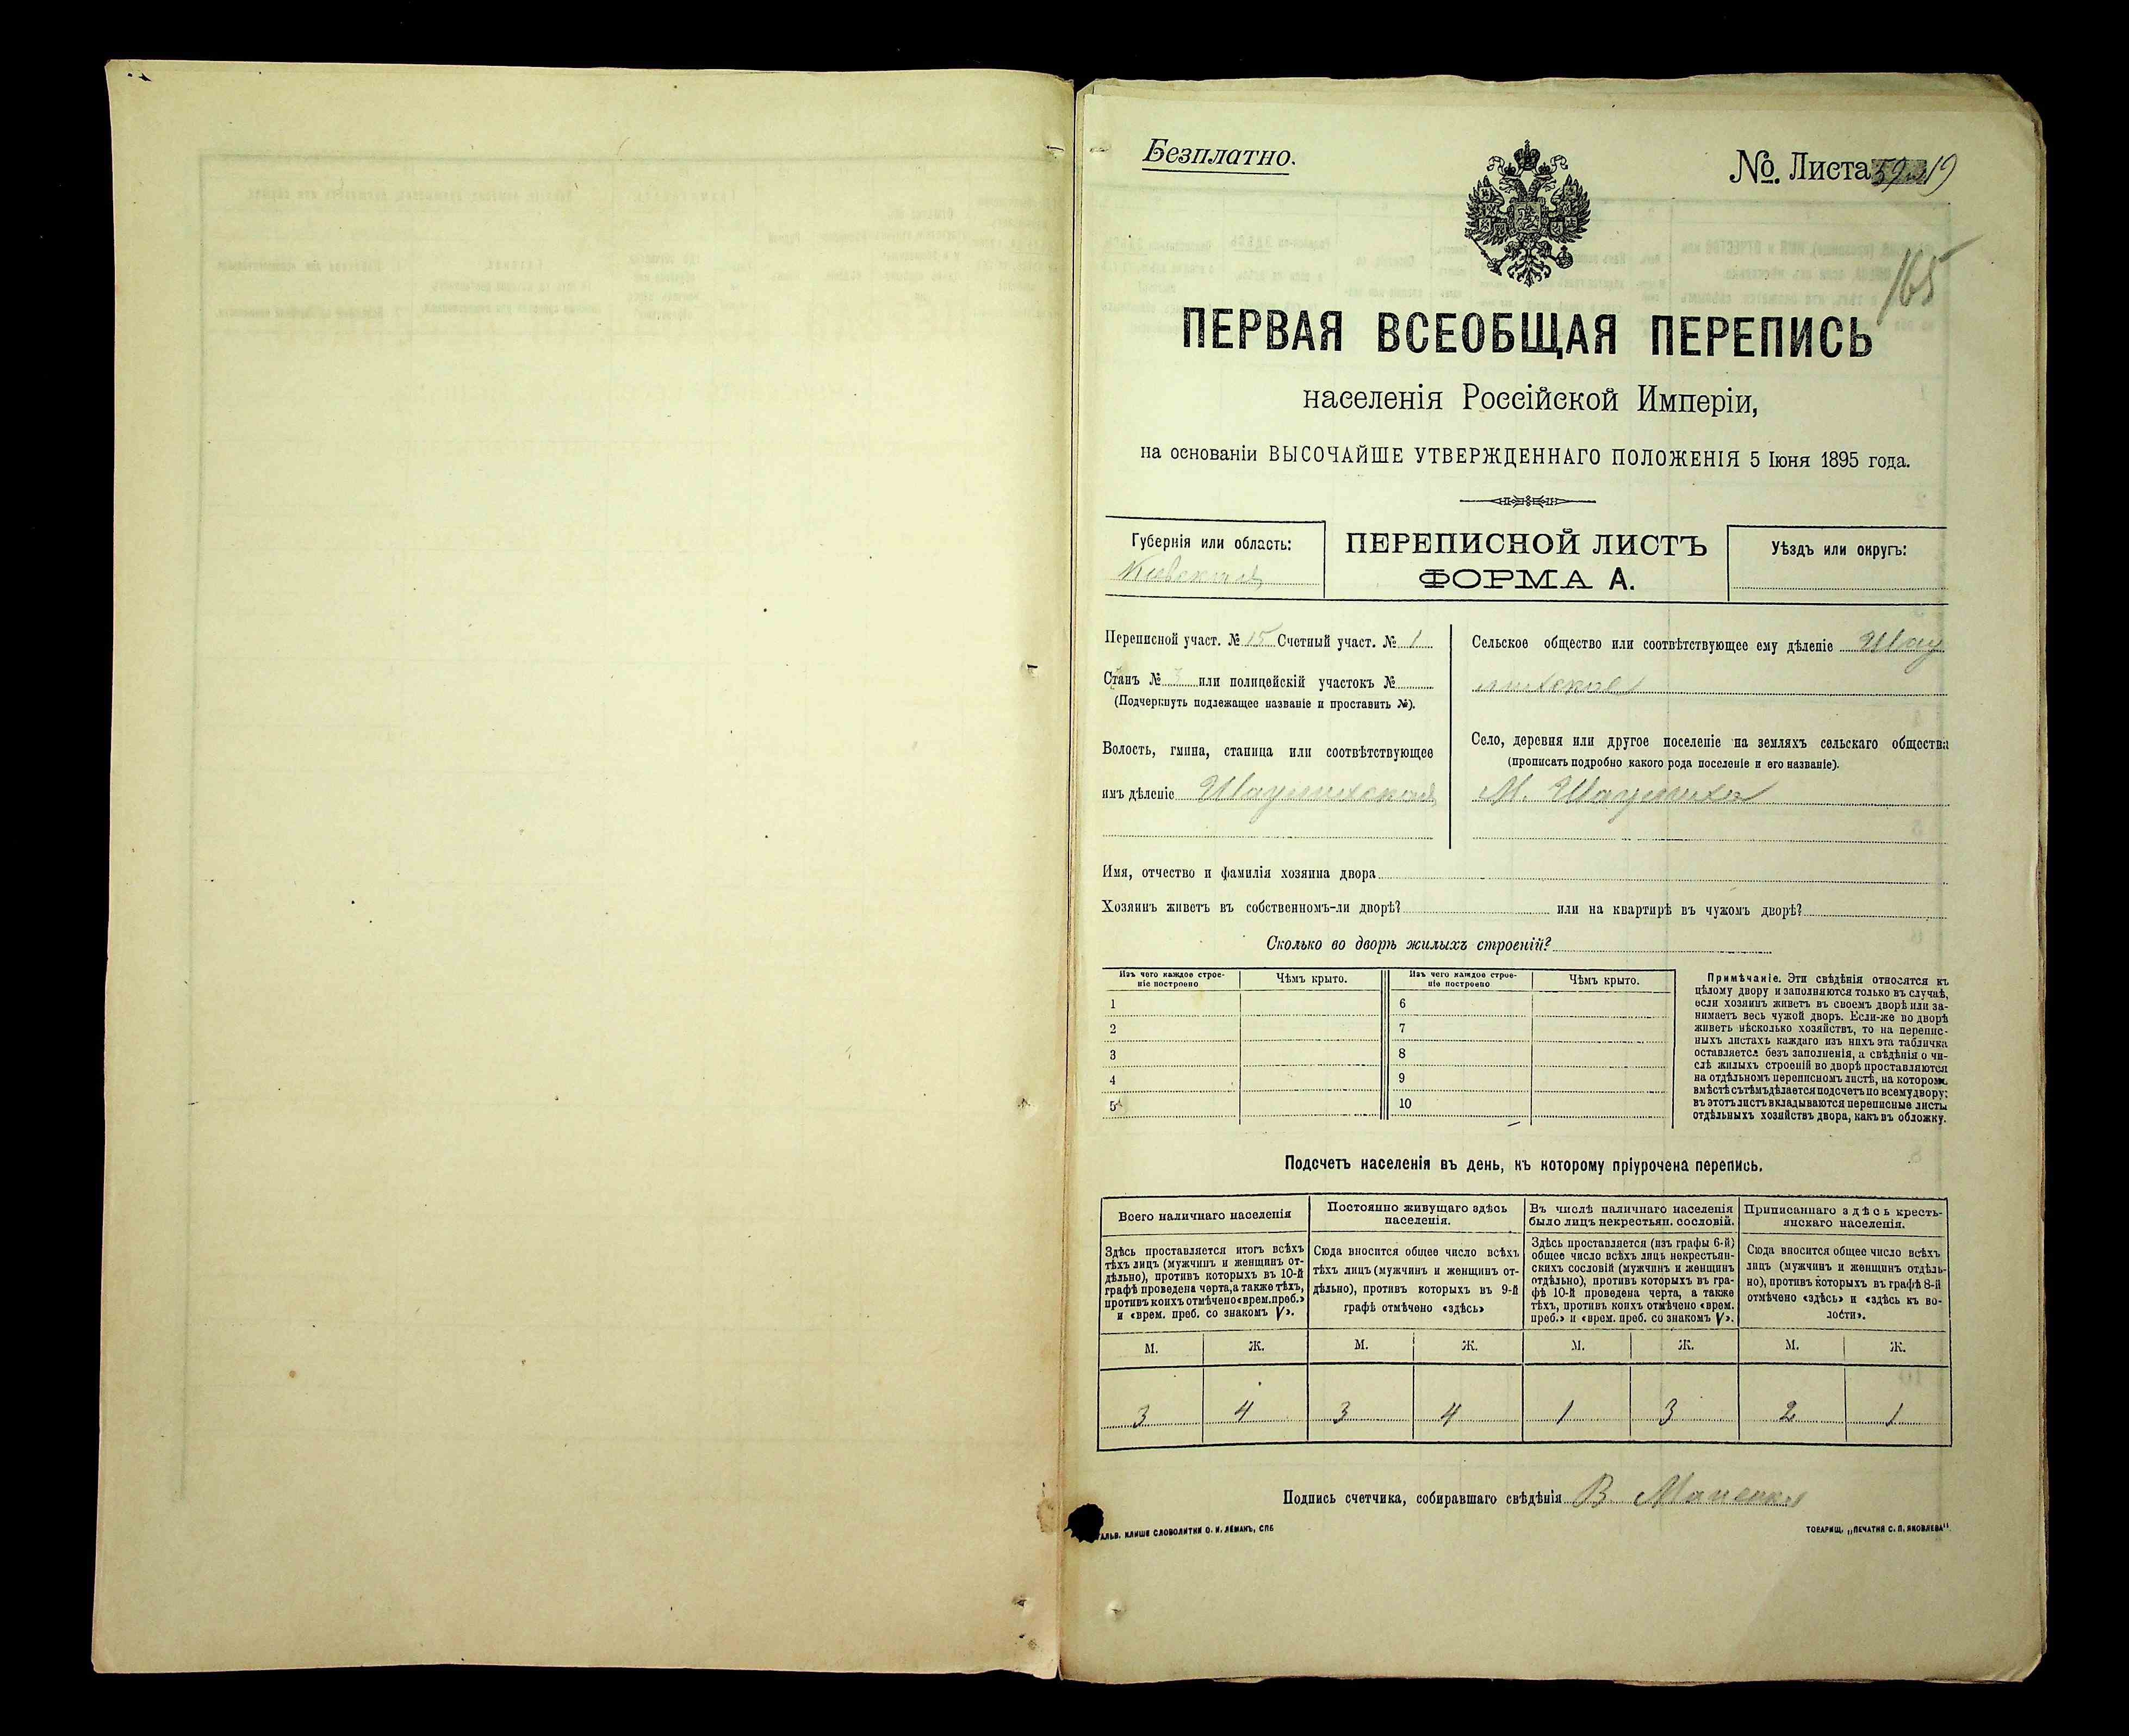 Безплатно.
№. Листа 19
165
ПЕРВАЯ ВСЕОБЩАЯ ПЕРЕПИСЬ
населенія Россійской Имперіи,
на основаніи ВЫСОЧАЙШЕ УТВЕРЖДЕННАГО ПОЛОЖЕНІЯ 5 Іюня 1895 года.
Губернія или область:
Кіевская
ПЕРЕПИСНОЙ ЛИСТЪ
ФОРМА А.
Уѣздъ или округъ:
Переписной участ. № 15 Счетный участ. № 1
Станъ № 3 или полицейскій участокъ №
(Подчеркнуть подлежащее названіе и проставить №).
Волость, гмина, станица или соотвѣтствующее
имъ дѣленіе Шаулихская
Сельское общество или соотвѣтствующее ему дѣленіе Шау
лихское
Село, деревня или другое поселеніе на земляхъ сельскаго общества
(прописать подробно какого рода поселеніе и его названіе).
М. Шаулиха
Имя, отчество и фамилія хозяина двора
Хозяинъ живетъ въ собственномъ-ли дворѣ? или на квартирѣ въ чужомъ дворѣ?
Сколько во дворѣ жилыхъ строеній?
Изъ чего каждое строе-
ніе построено
Чѣмъ крыто.
Изъ чего каждое строе-
ніе построено
Чѣмъ крыто.
1
2
3
4
5
6
7
8
9
10
Примѣчаніе. Эти свѣдѣнія относятся къ
цѣлому двору и заполняются только въ случаѣ,
если хозяинъ живетъ въ своемъ дворѣ или за-
нимаетъ весь чужой дворъ. Если-же во дворѣ
живетъ нѣсколько хозяйствъ, то на перепис-
ныхъ листахъ каждаго изъ нихъ эта табличка
оставляется безъ заполненія, а свѣдѣнія о чи-
слѣ жилыхъ строеній во дворѣ проставляются
на отдѣльномъ переписномъ листѣ, на которомъ
вмѣстѣ съ тѣмъ дѣлается подсчетъ по всему двору;
въ этотъ листъ вкладываются переписные листы
отдѣльныхъ хозяйствъ двора, какъ въ обложку.
Подсчетъ населенія въ день, къ которому пріурочена перепись.
Всего наличнаго населенія
Здѣсь проставляется итогъ всѣхъ
тѣхъ лицъ (мужчинъ и женщинъ от-
дѣльно), противъ которыхъ въ 10-й
графѣ проведена черта, а также тѣхъ,
противъ коихъ отмѣчено «врем. преб.»
и «врем. преб. со знакомъ V».
Постоянно живущаго здѣсь
населенія.
Сюда вносится общее число всѣхъ
тѣхъ лицъ (мужчинъ и женщинъ от-
дѣльно), противъ которыхъ въ 9-й
графѣ отмѣчено «здѣсь»
Въ числѣ наличнаго населенія
было лицъ некрестьян. сословій.
Здѣсь проставляется (изъ графы 6-й)
общее число всѣхъ лицъ некрестьян-
скихъ сословій (мужчинъ и женщинъ
отдѣльно), противъ которыхъ въ гра-
фѣ 10-й проведена черта, а также
тѣхъ, противъ коихъ отмѣчено «врем.
преб.» и «врем. преб. со знакомъ V».
Приписаннаго здѣсь кресть-
янскаго населенія.
Сюда вносится общее число всѣхъ
лицъ (мужчинъ и женщинъ отдѣль-
но), противъ которыхъ въ графѣ 8-й
отмѣчено «здѣсь» и «здѣсь къ во-
лости».
М. Ж. М. Ж. М. Ж. М. Ж.
3 4 3 4 1 3 2 1
Подпись счетчика, собиравшаго свѣдѣнія В
ГАЛЬВ. КЛИШЕ СЛОВОЛИТНИ О. И. ЛЕМАНЪ, СПБ
ТОВАРИЩ. „ПЕЧАТНЯ С. П. ЯКОВЛЕВА"